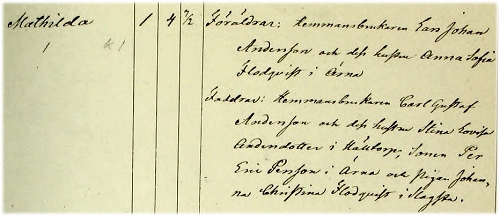 Mathilda 1 4 7/2 Föräldrar: Hemmansbrukaren Lars Johan
Anderson och dess hustru Anna Sofia
Flodqvist i Årna
Faddrar: Hemmansbrukaren Carl Gustaf
Anderson och dess hustru Stina Lovisa
Andersdotter i Hälltorp, sonen Per
Eric Persson i Årna och pigan Johan-
na Christina Flodqvist i